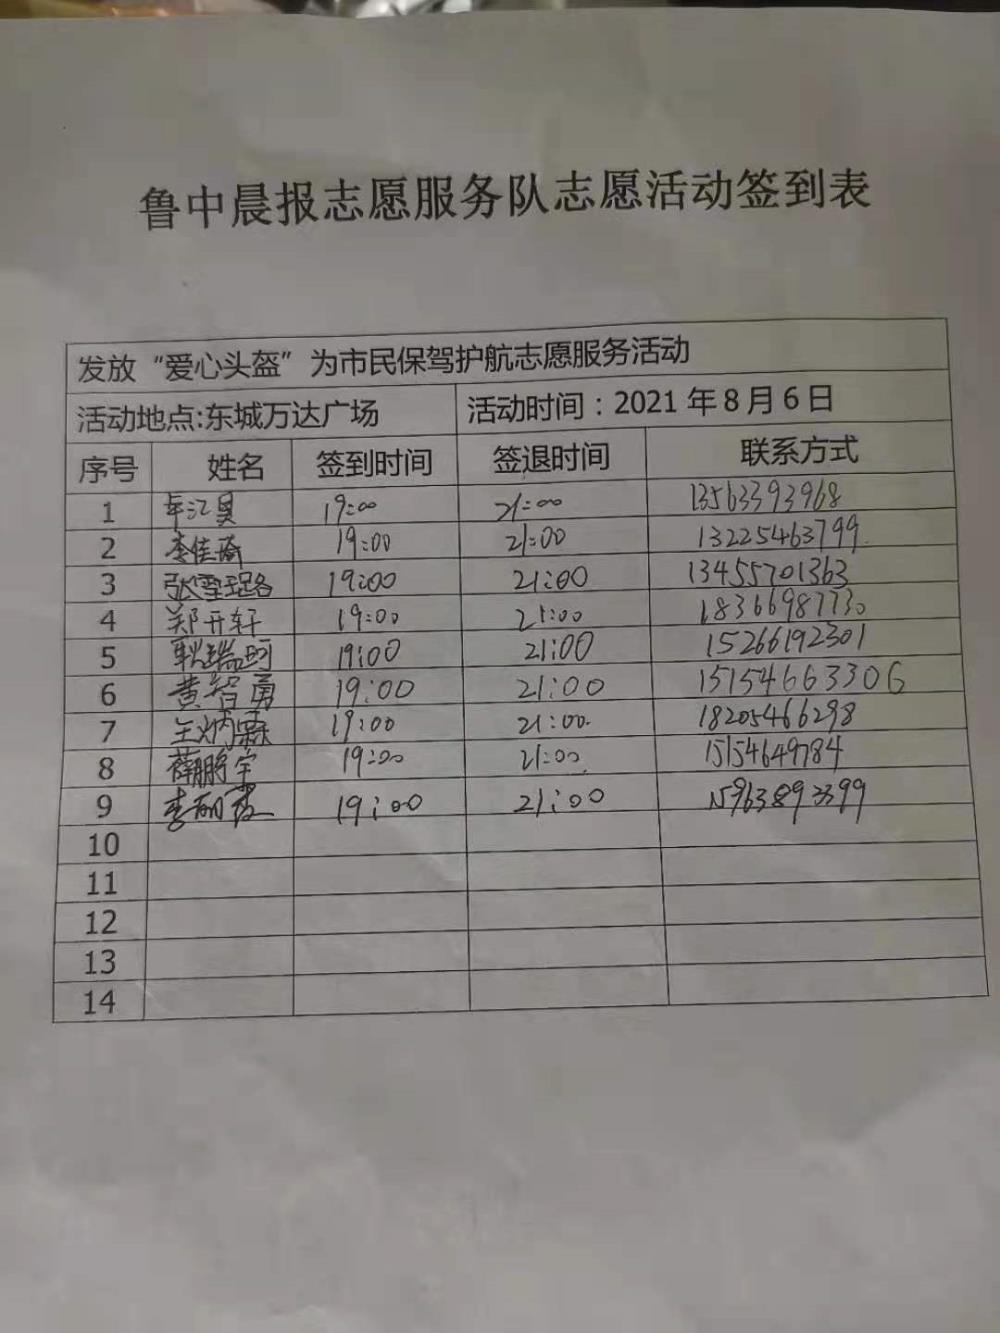 鲁中晨报志愿服务队志愿活动签到表
发放“爱心头盔”为市民保驾护航志愿服务活动
活动地点:东城万达广场 活动时间：2021 年 8 月 6 日
序号 姓名 签到时间 签退时间 联系方式
1 19:00 21:00 13563393968
2 李佳琦 19:00 21:00 13225463799
3 张雪珞 19:00 21:00 13455701363
4 郑开轩 19:00 21:00 18366987730
5 耿瑞珂 19:00 21:00 15266192301
6 黄智勇 19:00 21:00 15154663306
7 王炳霖 19:00 21:00. 18205466298
8 薛鹏宇 19:00 21:00 15154649784
9 李丽霞 19:00 21:00 15963893399
10
11
12
13
14